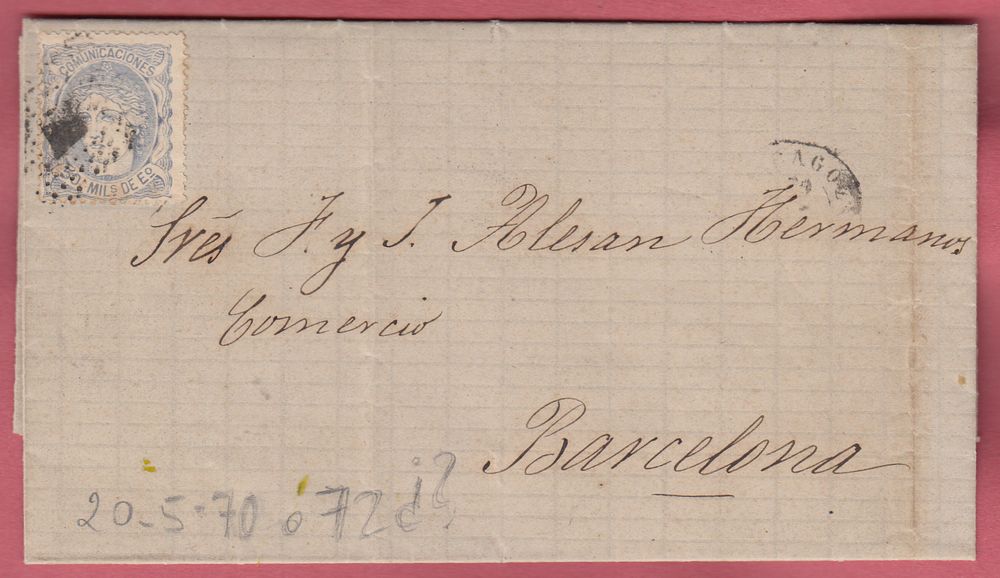 COMUNICACIONES
MILS DE Eº
AGOZ
Srés F. y J. Alesan Hermanos
Comercio
Barcelona
20-5-70 ó 72